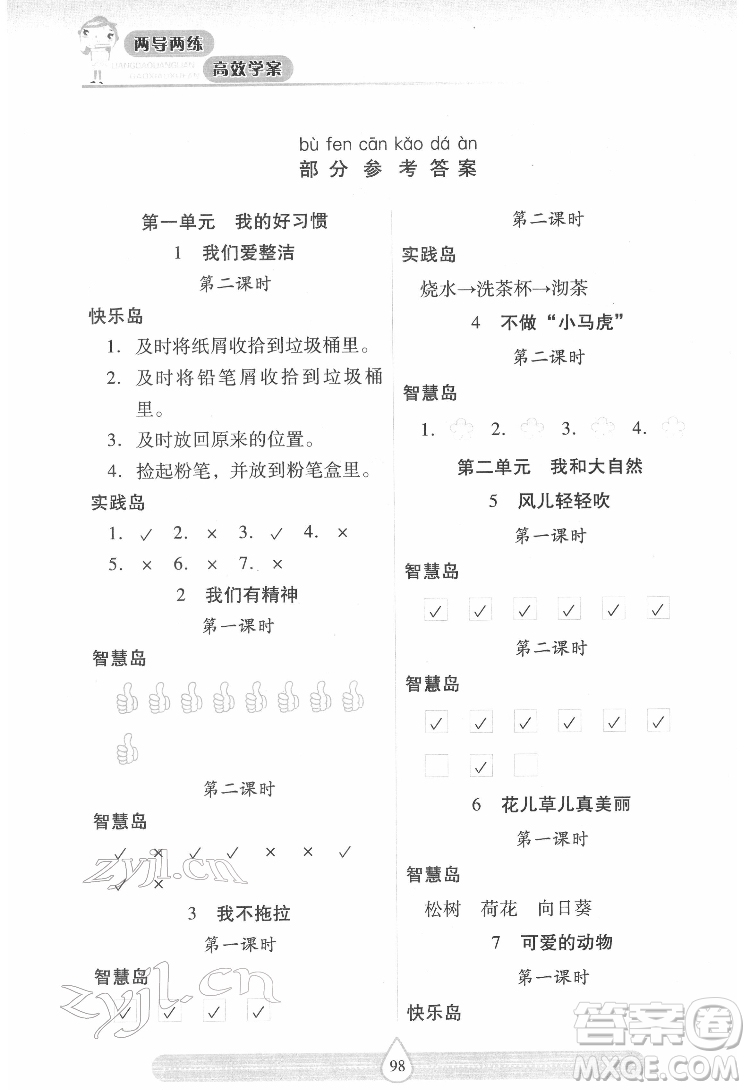 两导两练
高效学案
bù fen cān kǎo dá àn
部分参考答案
第一单元 我的好习惯
1 我们爱整洁
第二课时
快乐岛
1. 及时将纸屑收拾到垃圾桶里。
2. 及时将铅笔屑收拾到垃圾桶
里。
3. 及时放回原来的位置。
4. 捡起粉笔，并放到粉笔盒里。
实践岛
1. ✓ 2. × 3. ✓ 4. ×
5. × 6. × 7. ×
2 我们有精神
第一课时
智慧岛
第二课时
智慧岛
✓ × ✓ ✓ × × ✓
✓ ×
3 我不拖拉
第一课时
智慧岛
✓ ✓ ✓ ✓
第二课时
实践岛
烧水→洗茶杯→沏茶
4 不做“小马虎”
第二课时
智慧岛
1. 2. 3. 4.
第二单元 我和大自然
5 风儿轻轻吹
第一课时
智慧岛
✓ ✓ ✓ ✓ ✓ ✓
第二课时
智慧岛
✓ ✓ ✓ ✓ ✓ ✓
✓
6 花儿草儿真美丽
第一课时
智慧岛
松树 荷花 向日葵
7 可爱的动物
第一课时
快乐岛
98
zyjl.cn
zyjl.cn
答案圈
MXQE.COM